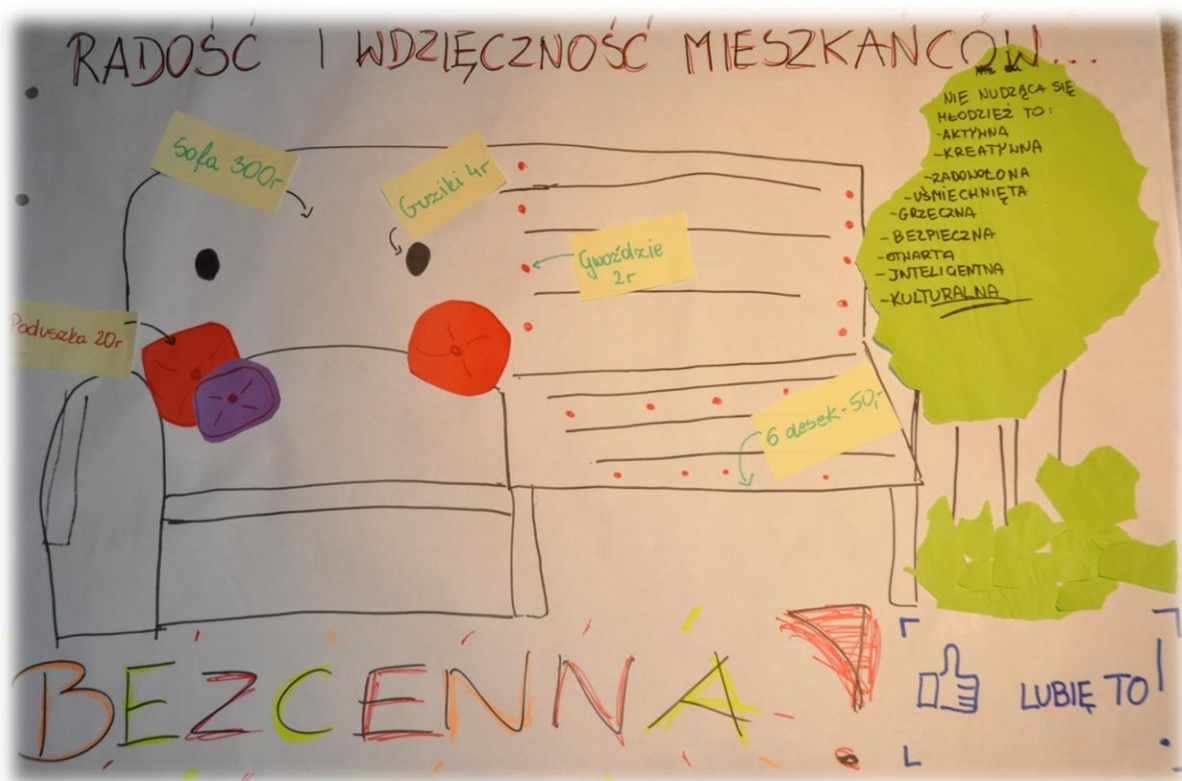 RADOŚĆ I WDZIĘCZNOŚĆ MIESZKAŃCÓW...
Sofa 300r
Guziki 4r
Gwoździe
2r
Poduszka 20r
6 desek - 50,-
NIE NUDZĄCA SIĘ
MŁODZIEŻ TO:
-AKTYWNA
-KREATYWNA
-ZADOWOLONA
-UŚMIECHNIĘTA
-GRZECZNA
-BEZPIECZNA
-OTWARTA
-INTELIGENTNA
-KULTURALNA
BEZCENNA!
LUBIĘ TO!